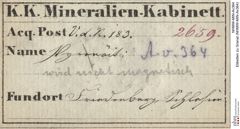 K. K. Mineralien-Kabinett.
Acq. Post V. d. K. 183. 2659.
Name Pyrenäit A.v. 364
wird nicht magnetisch
Fundort Friedenberg, Schlesien